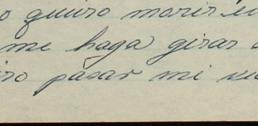 quiero morir
me haga girar
pasar mi